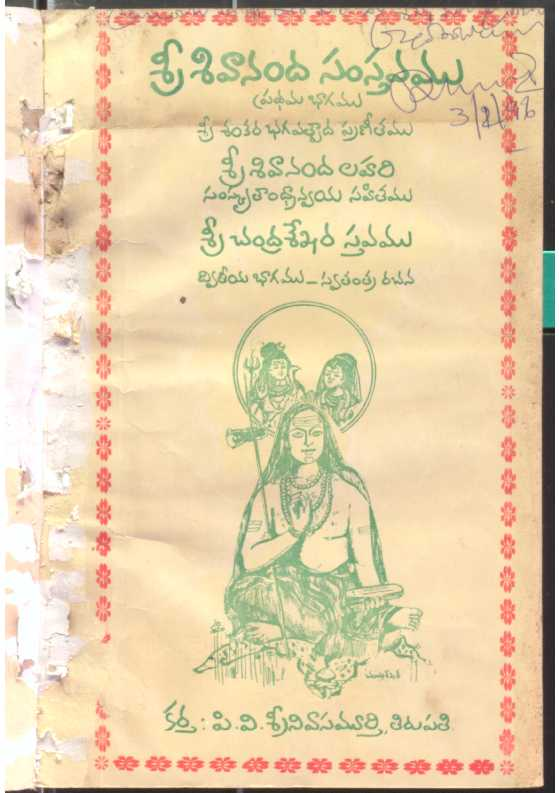 శ్రీ శివానంద సంస్తవము
(ప్రథమ భాగము
శ్రీ శంకర భగవత్పాద ప్రణీతము
శ్రీ శివానంద లహరి
సంస్కృతాంధ్రాన్వయ సహితము
శ్రీ చంద్రశేఖర స్తవము
ద్వితీయ భాగము - స్వతంత్ర రచన
కర్త : పి. వి. శ్రీనివాసమూర్తి, తిరుపతి.